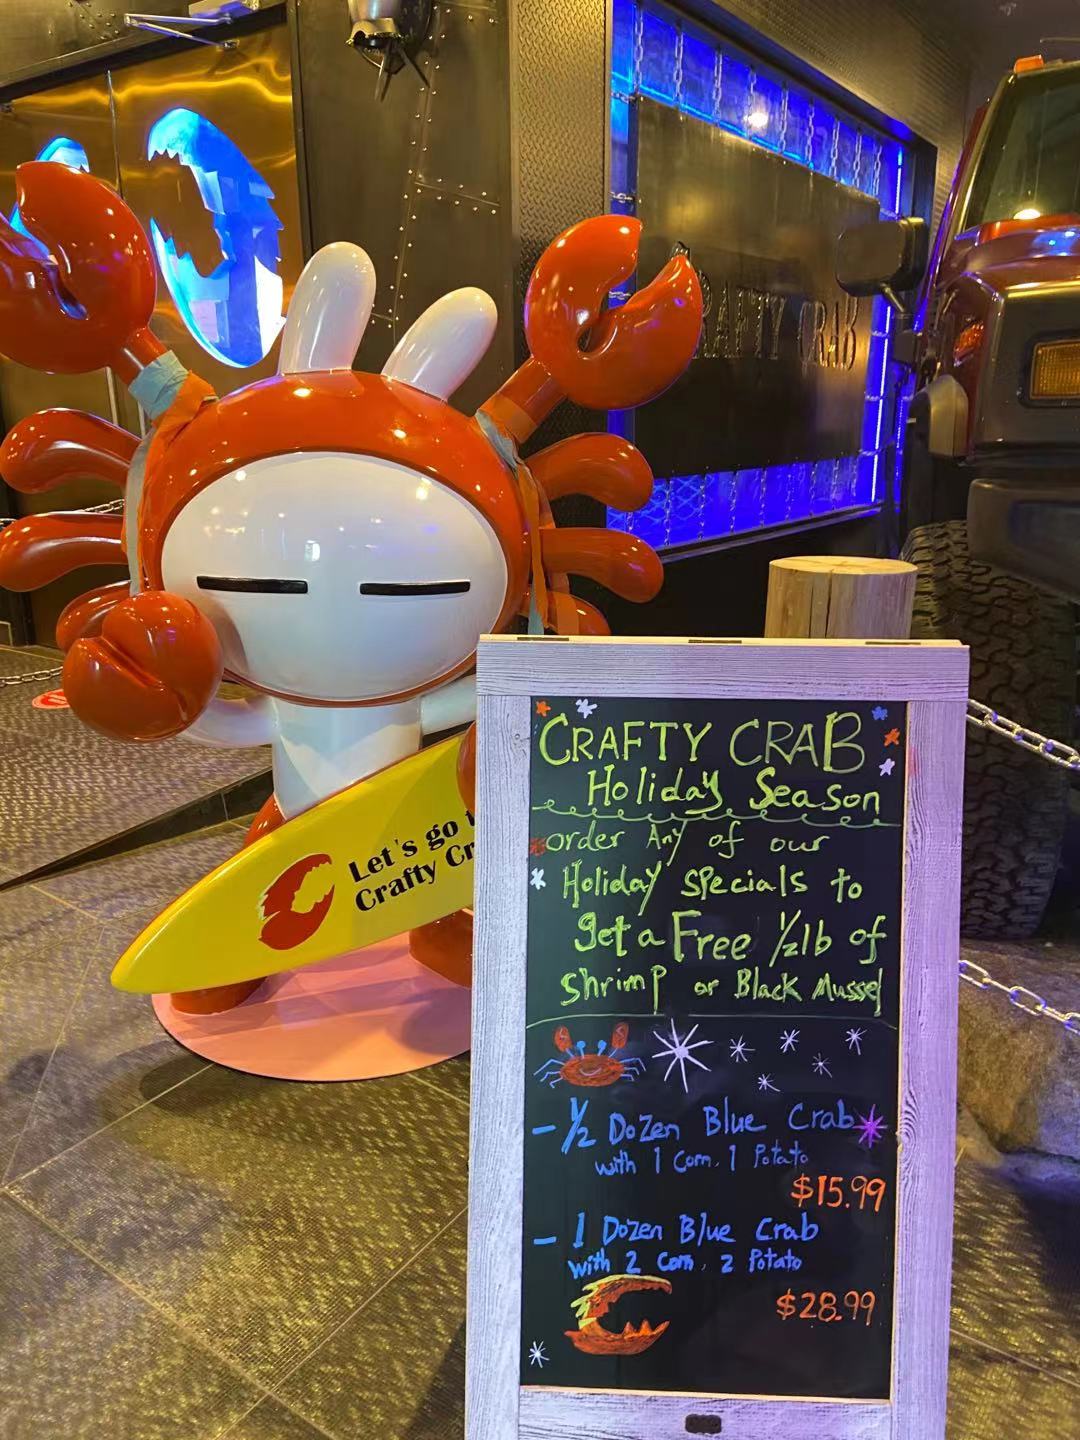 CRAFTY CRAB
Let's go t
Crafty Cr
CRAFTY CRAB
Holiday Season
order Any of our
Holiday specials to
get a Free ½lb of
Shrimp or Black Mussel
- ½ Dozen Blue Crab
with 1 Corn, 1 Potato
$15.99
- 1 Dozen Blue Crab
with 2 Corn, 2 Potato
$28.99